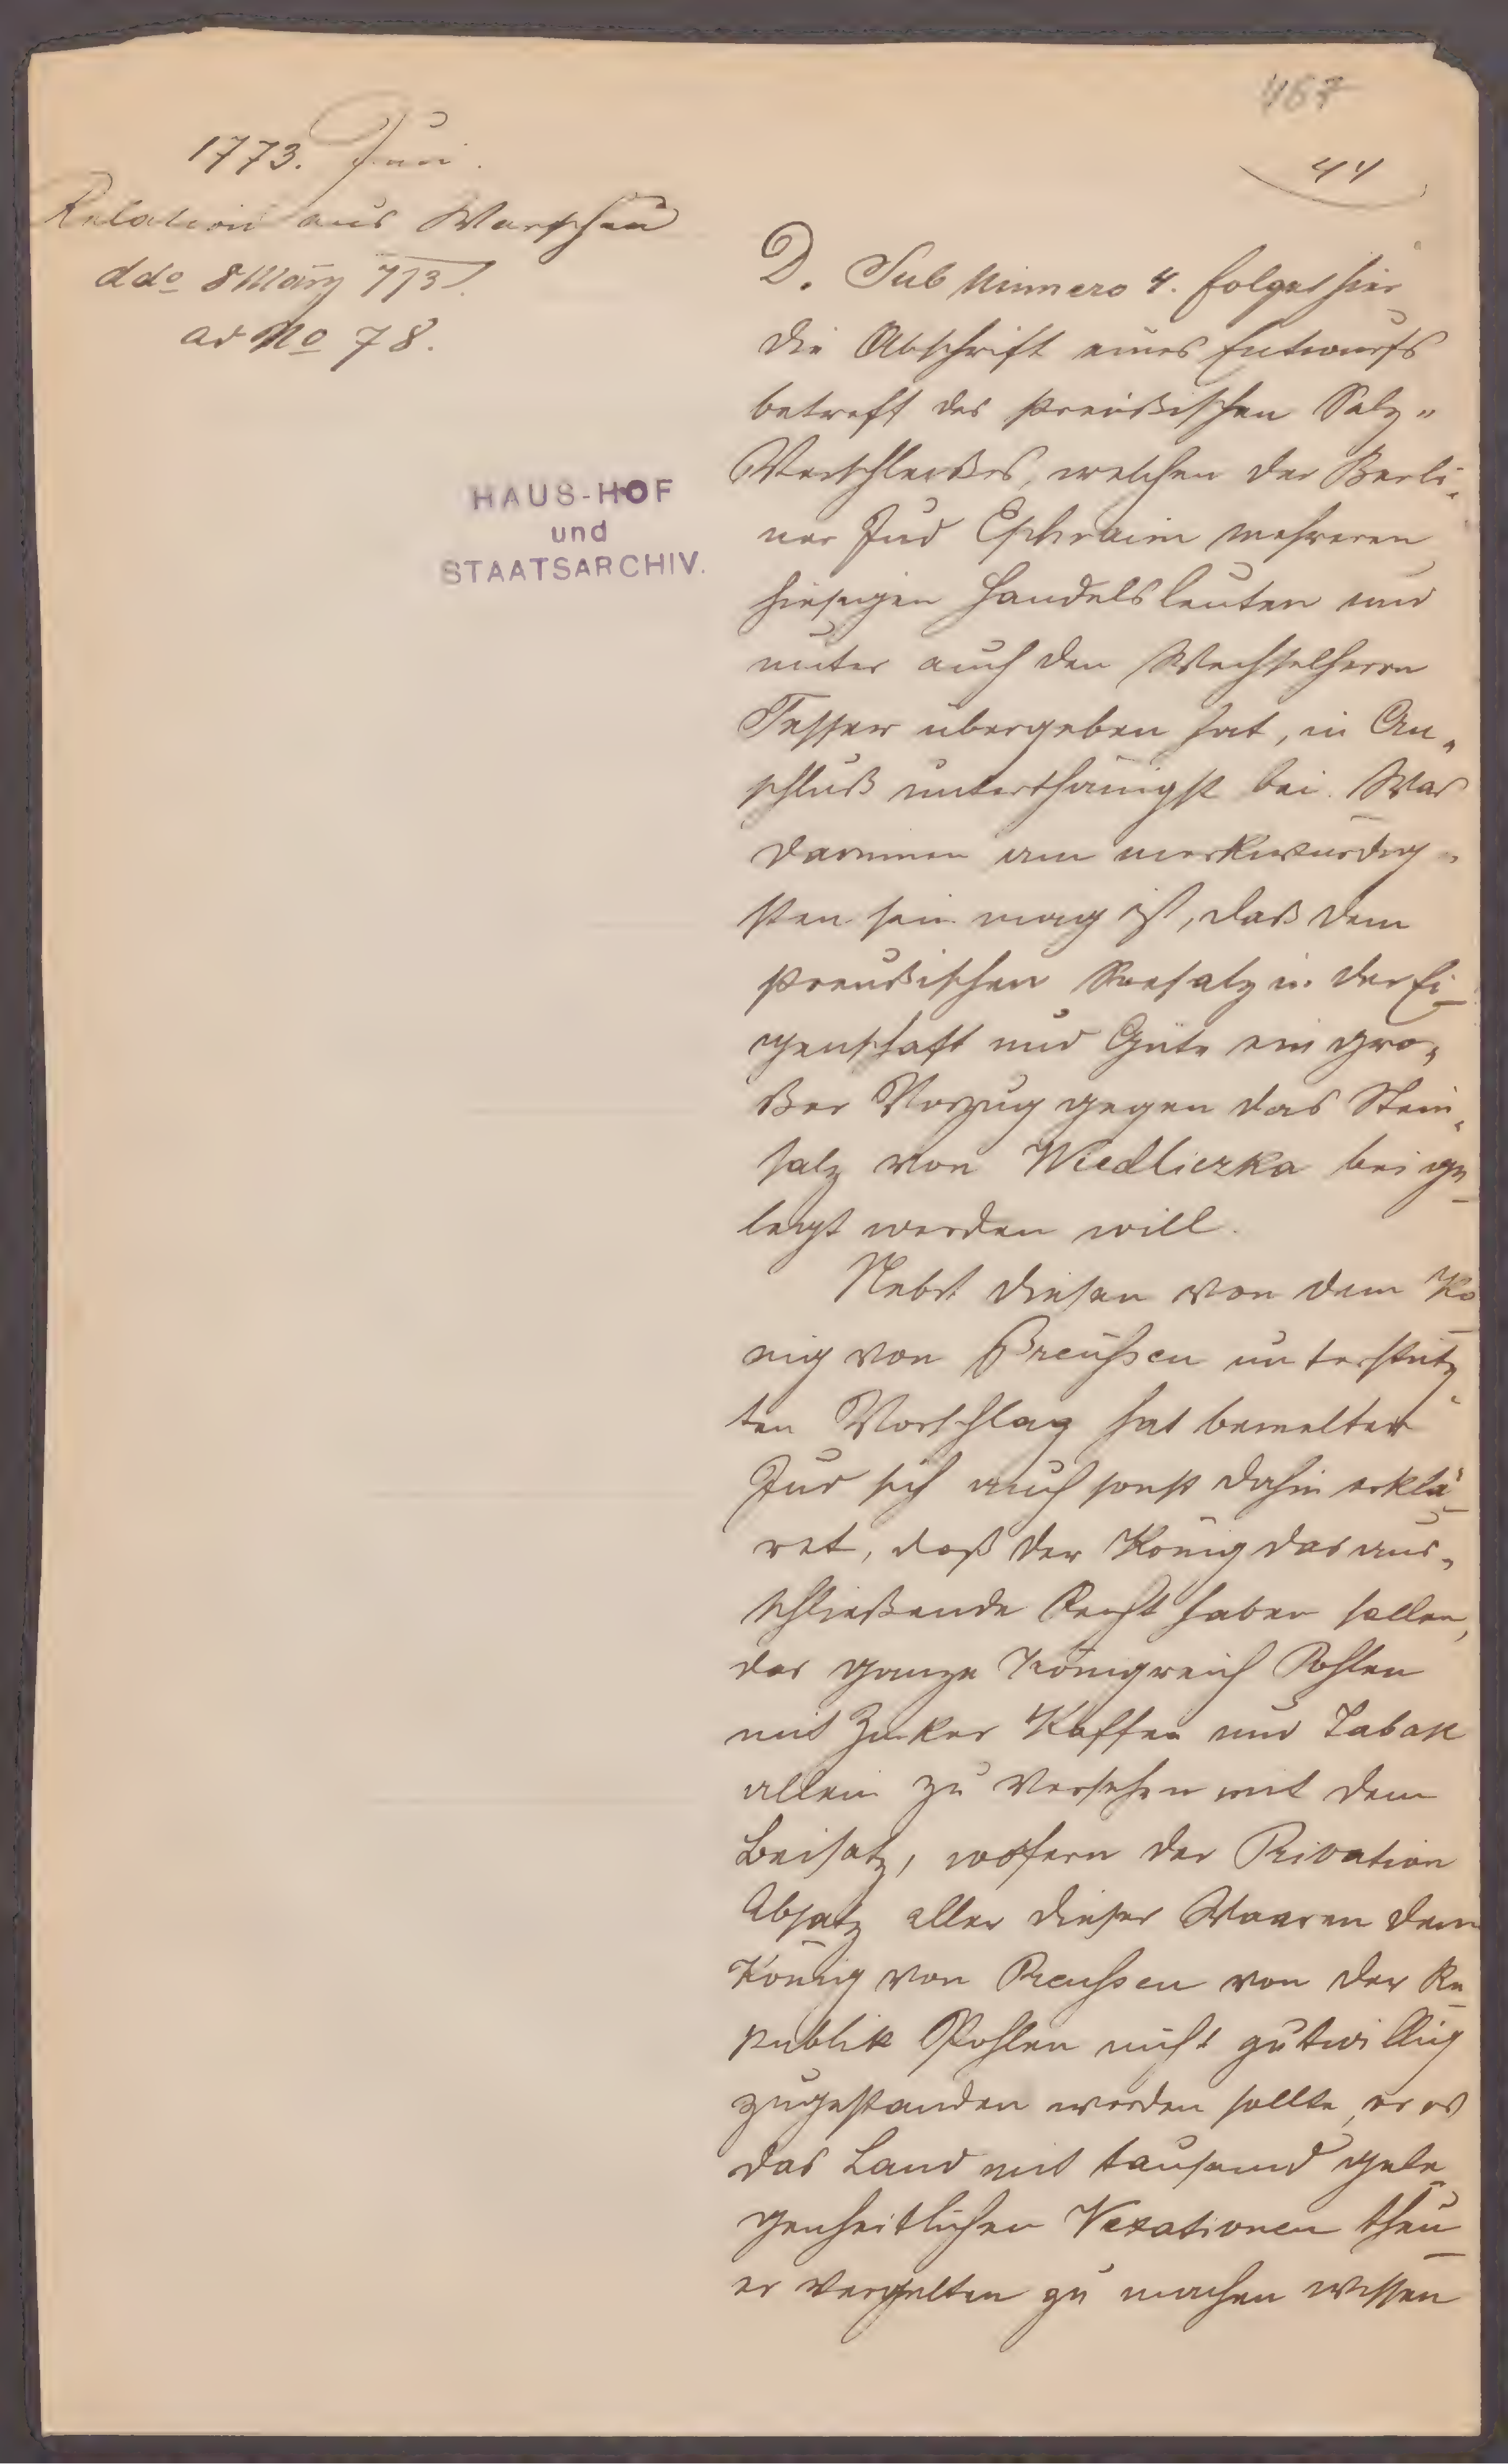 467
44
1773. Juni.
Relation aus Warschau
ddo 8 März 773.
ad No 78.
HAUS-HOF
und
STAATSARCHIV.
D. Sub Numero 4. folget hier
die Abschrift eines Entwurfs
betreff des preußischen Salz„
Verschleißes, welchen der Berli„
ner Jud Ephraim mehreren
hiesigen Handelsleuten und
unter auch den Wechselherrn
Tepper übergeben hat, in An„
schluß unterthänigst bei. Was
darinnen am merkwürdig„
sten sein mag ist, daß dem
preußischen Seesalz in der Ei-
genschaft und Güte ein gro„
ßer Vorzug gegen das Stein„
salz von Wiedliczka bei ge-
legt werden will.
Nebst diesen von dem Kö-
nig von Preußen unterstütz„
ten Vorschlag hat bemelter
Jud sich auch sonst dahin erklä-
ret, daß der König das aus„
schließende Recht haben sollen,
das ganze Königreich Pohlen
mit Zuker Kaffee und Tabak
allein zu versehen mit dem
Beisatz, wofern der Privation
Absatz aller dieser Waaren dem
König von Preußen von der Re-
publik Pohlen nicht gutwillig
zugestanden werden sollte, er es
das Land mit tausend gele-
genheitlichen Vexationen theu-
er vergelten zu machen wissen